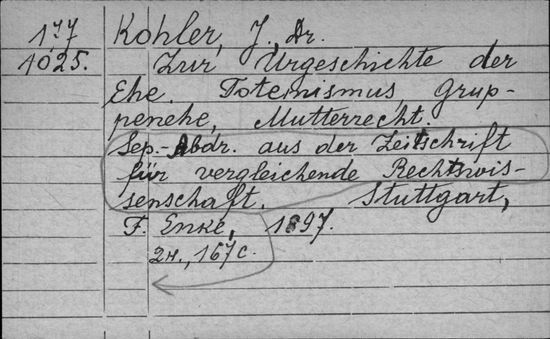 177
1025.
Kohler, J. Dr.
Zur Urgeschichte der
Ehe. Totemismus, Grup-
penehe, Mutterrecht.
Sep.-Abdr. aus der Zeitschrift
für vergleichende Rechtswis-
senschaft. Stuttgart,
F. Enke, 1897.
2н., 167с.